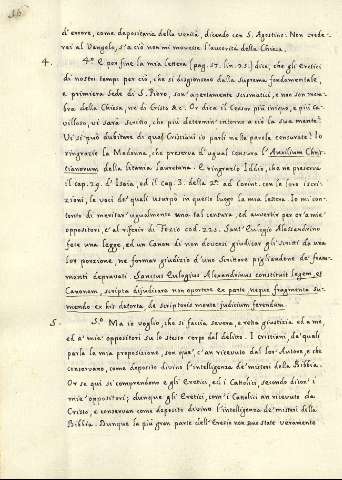 16
d'errore, come depositaria della verità, dicendo con S. Agostino. Non crede-
rei al Vangelo, s'a ciò non mi movesse l'autorità della Chiesa.
4. 4.° E per fine la mia lettera (pag. 57. lin. 25.) dice, che gli Eretici
di nostri tempi per ciò, che si disgiunsero dalla suprema fondamentale,
e primiera Sede di S. Piero, son' apertamente scismatici, e non son mem-
bra della Chiesa, nè di Cristo &c. Or dica il Censor più iniquo, e più ca-
villoso, vi sarà scritto, che più determini intorno a ciò la sua mente?
Vi si può dubitare di quai Cristiani io parli nella parola censurata? Io
ringrazio la Madonna, che preserva d'ugual censura l'Auxilium Chri-
stianorum della litania Lauretana. E ringrazio Iddio, che ne preserva
il cap. 29. d'Isaia, ed il cap. 3. della 2.ª ad Corint. con le loro iscri-
zioni, le voci de' quali usurpo in questo luogo la mia lettera. Io mi con-
tento di meritar' ugualmente una tal censura, ed avvertir per or' a' miei
oppositori, e' al riferir di Fozio cod. 225. Sant' Eulogio Alessandrino
fece una legge, ed un Canon di non doversi giudicar gli scritti da una
lor porzione, ne formar giudizio d'uno Scrittore pigliandone de' fram-
menti depravati. Sanctus Eulogius Alexandrinus constituit legem, et
Canonem, scripta dijudicare non oportere ex parte neque fragmenta su-
mendo ex his detorta de scriptoris mente judicium ferendum
5. 5.° Ma io voglio, che si faccia severa, e retta giustizia ed a me,
ed a' miei oppositori su lo stesso corpo del delitto. I cristiani, de' quali
parla la mia proposizione, son que', c' an ricevuto dal lor Autore, e che
conservano, come deposito divino l'intelligenza de' misteri della Bibbia.
Or se qui si comprendono e gli Eretici, ed i Catolici secondo dicon' i
miei oppositori; dunque gli Eretici, com' i Catolici an ricevuto da
Cristo, e conservan come deposito divino l'intelligenza de' misteri della
Bibbia. Dunque la più gran parte dell' Eresie non sono state veramente